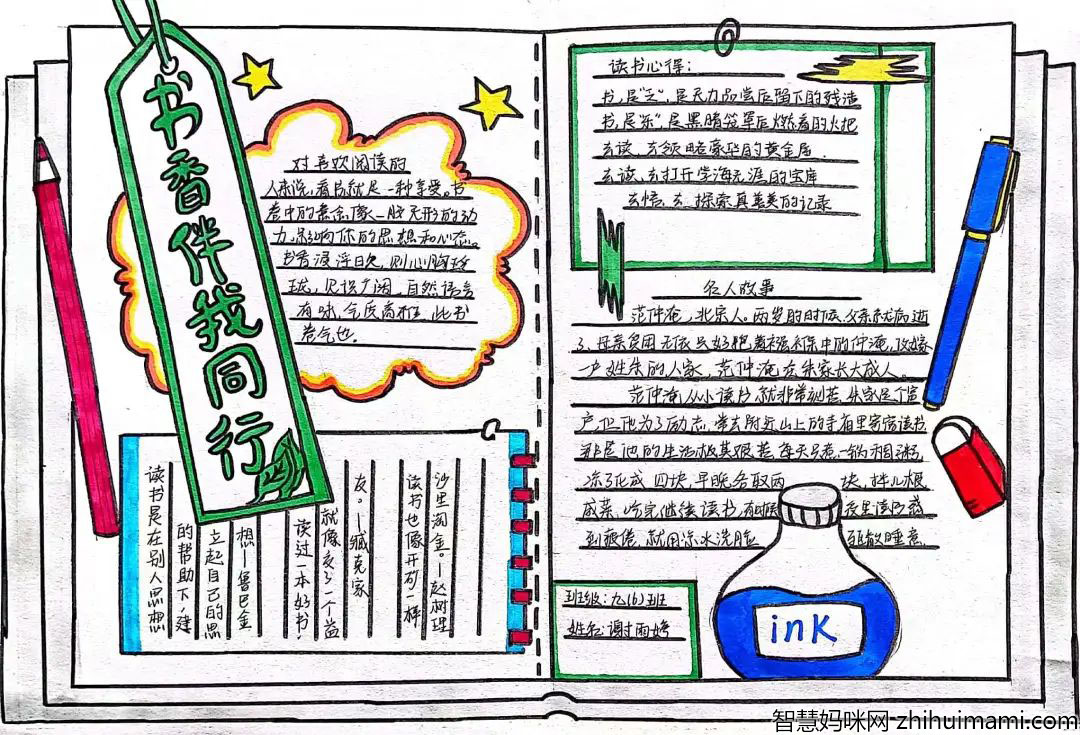 书香伴我同行
对喜欢阅读的
人来说，看书就是一种享受。书
卷中的意余，像一股无形的动
力，影响你的思想和心态。
书香浸浮日久，则心胸玲
珑，见识广阔，自然语言
有味，气质高雅，此书
卷气也。
读书是在别人思想
的帮助下，建
立起自己的思
想——鲁巴金
读过一本好书，
就像交了一个益
友。——臧克家
读书也像开矿一样
沙里淘金。——赵树理
读书心得：
书，是"乏"，是无力品尝后留下的残渣
书，是"乐"，是黑暗笼罩后燃着的火把
去读、去领略豪华的黄金屋
去读、去打开学海无涯的宝库
去悟、去探索真善美的记录
名人故事
范仲淹，北宋人。两岁的时候，父亲就病逝
了。母亲贫困无依，只好抱着襁褓中的仲淹，改嫁
一户姓朱的人家，范仲淹在朱家长大成人。
范仲淹从小读书就非常刻苦，朱家是个富
户，但他为了励志，常去附近山上的寺庙里寄宿读书
那是他的生活极其艰苦，每天只煮一锅稠粥，
凉了化成四块，早晚各取两块，拌几根
咸菜，吃完继续读书，有时候夜里
到疲倦，就用凉水洗脸驱散睡意
ink
班级：九（6）班
姓名：谢雨婷
智慧妈咪网 zhihuimami.com